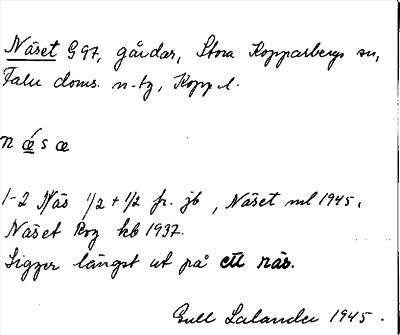 Näset G97, gårdar, Stora Kopparbergs sn,
Falu doms. n-tg, Kopp. l.
næ´sæ
1-2 Näs 1/2 + 1/2 fr. jb, Näset ml 1945,
Näset Roz kb 1937.
Ligger längst ut på ett näs.
Gull Lalander 1945.